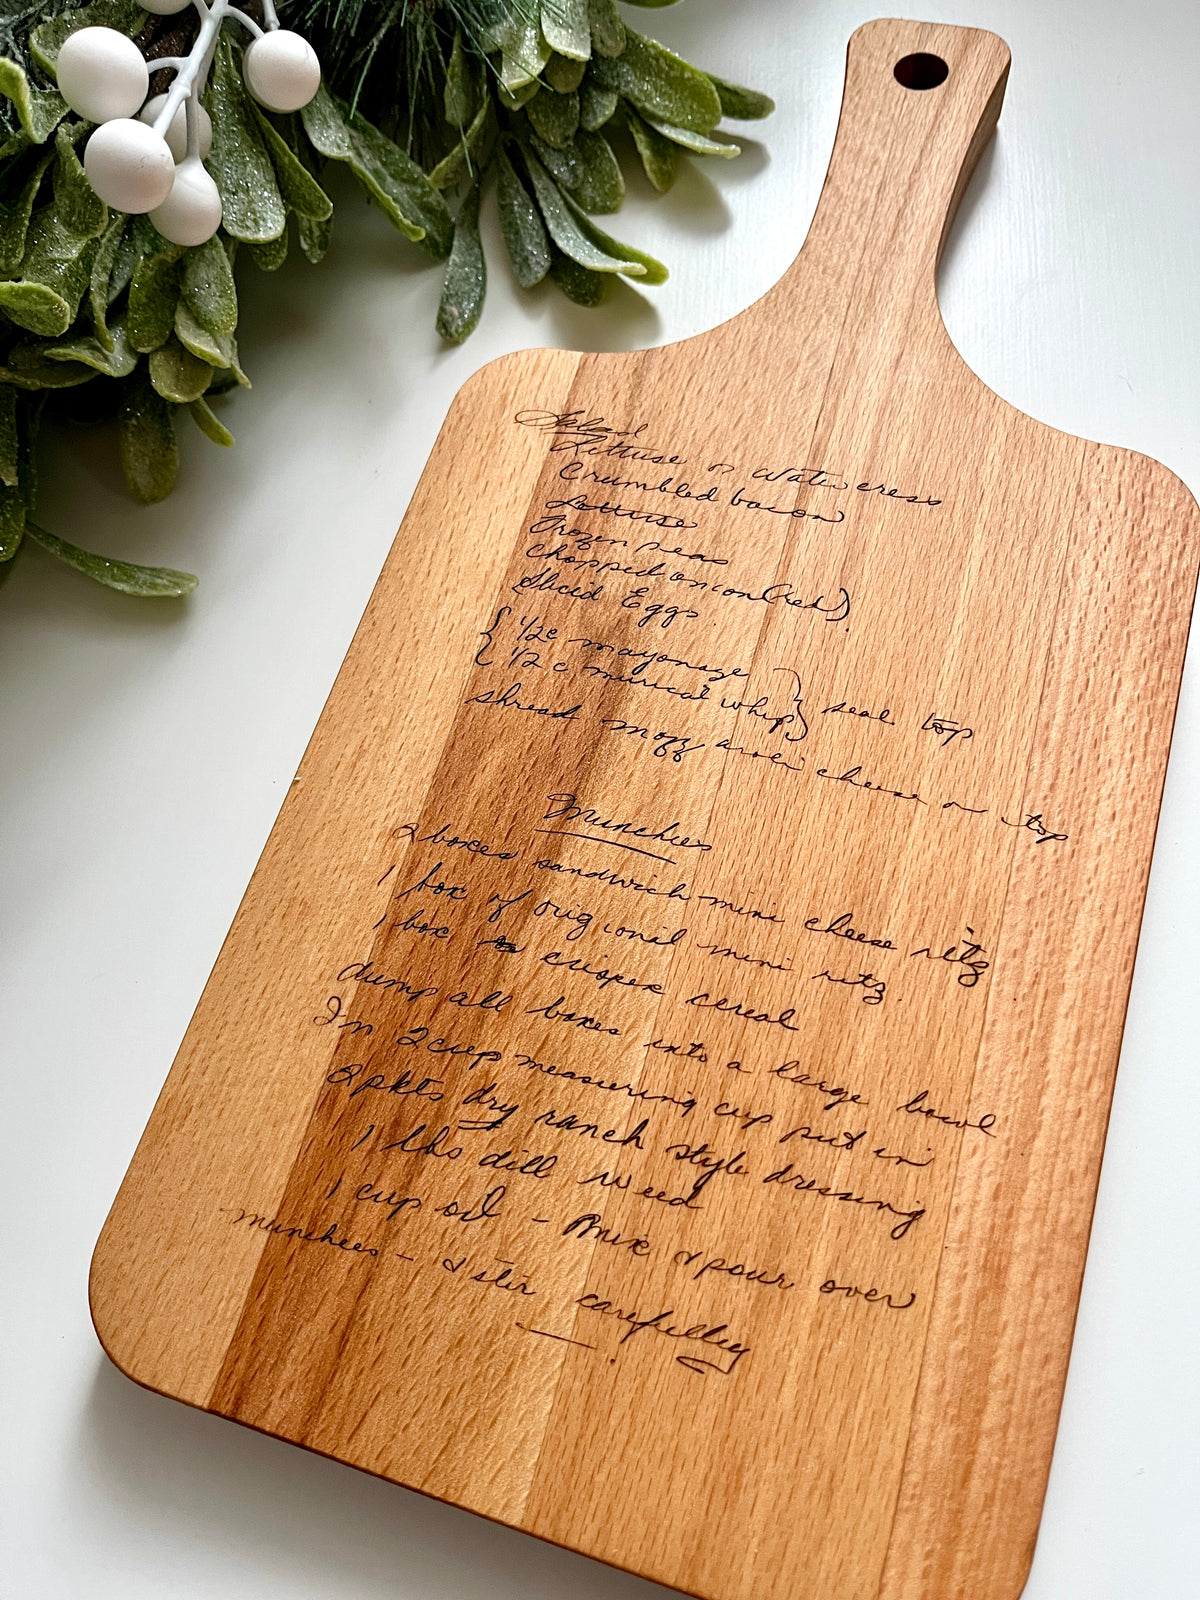 Salad
Lettuse or Watercress
Crumbled bacon
Lettuse
Frozen peas
Chopped onion (red).
Slicid Eggs.
{ 1/2 c mayonaze } seal top
{ 1/2 c mirical whip }
shread mozzaroli cheese on top
Munchies
2 boxes sandwich mini cheese ritz
1 box of origional mini ritz.
1 box crispex cereal
dump all boxes into a large bowl
In 2 cup measuring cup put in
2 pkts dry ranch style dressing
1 lbs dill weed
1 cup oil - Mix & pour over
munchees - & stir carefulley